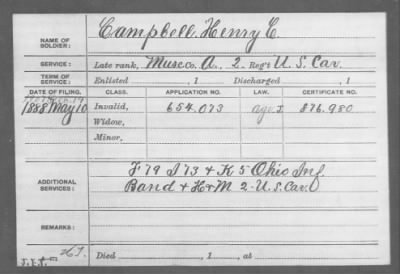 NAME OF SOLDIER: Campbell, Henry C.
SERVICE: Late rank, Musc Co. A, 2 Reg't U.S. Cav.
TERM OF SERVICE: Enlisted , 1 Discharged , 1
DATE OF FILING. CLASS. APPLICATION NO. LAW. CERTIFICATE NO.
1888 May 10 Invalid, 654.073 876.980
Widow,
Minor,
ADDITIONAL SERVICES: F 79 I 73 & K 5 Ohio Inf
Band & H & M 2 - U.S. Cav.
REMARKS:
Died , 1 , at